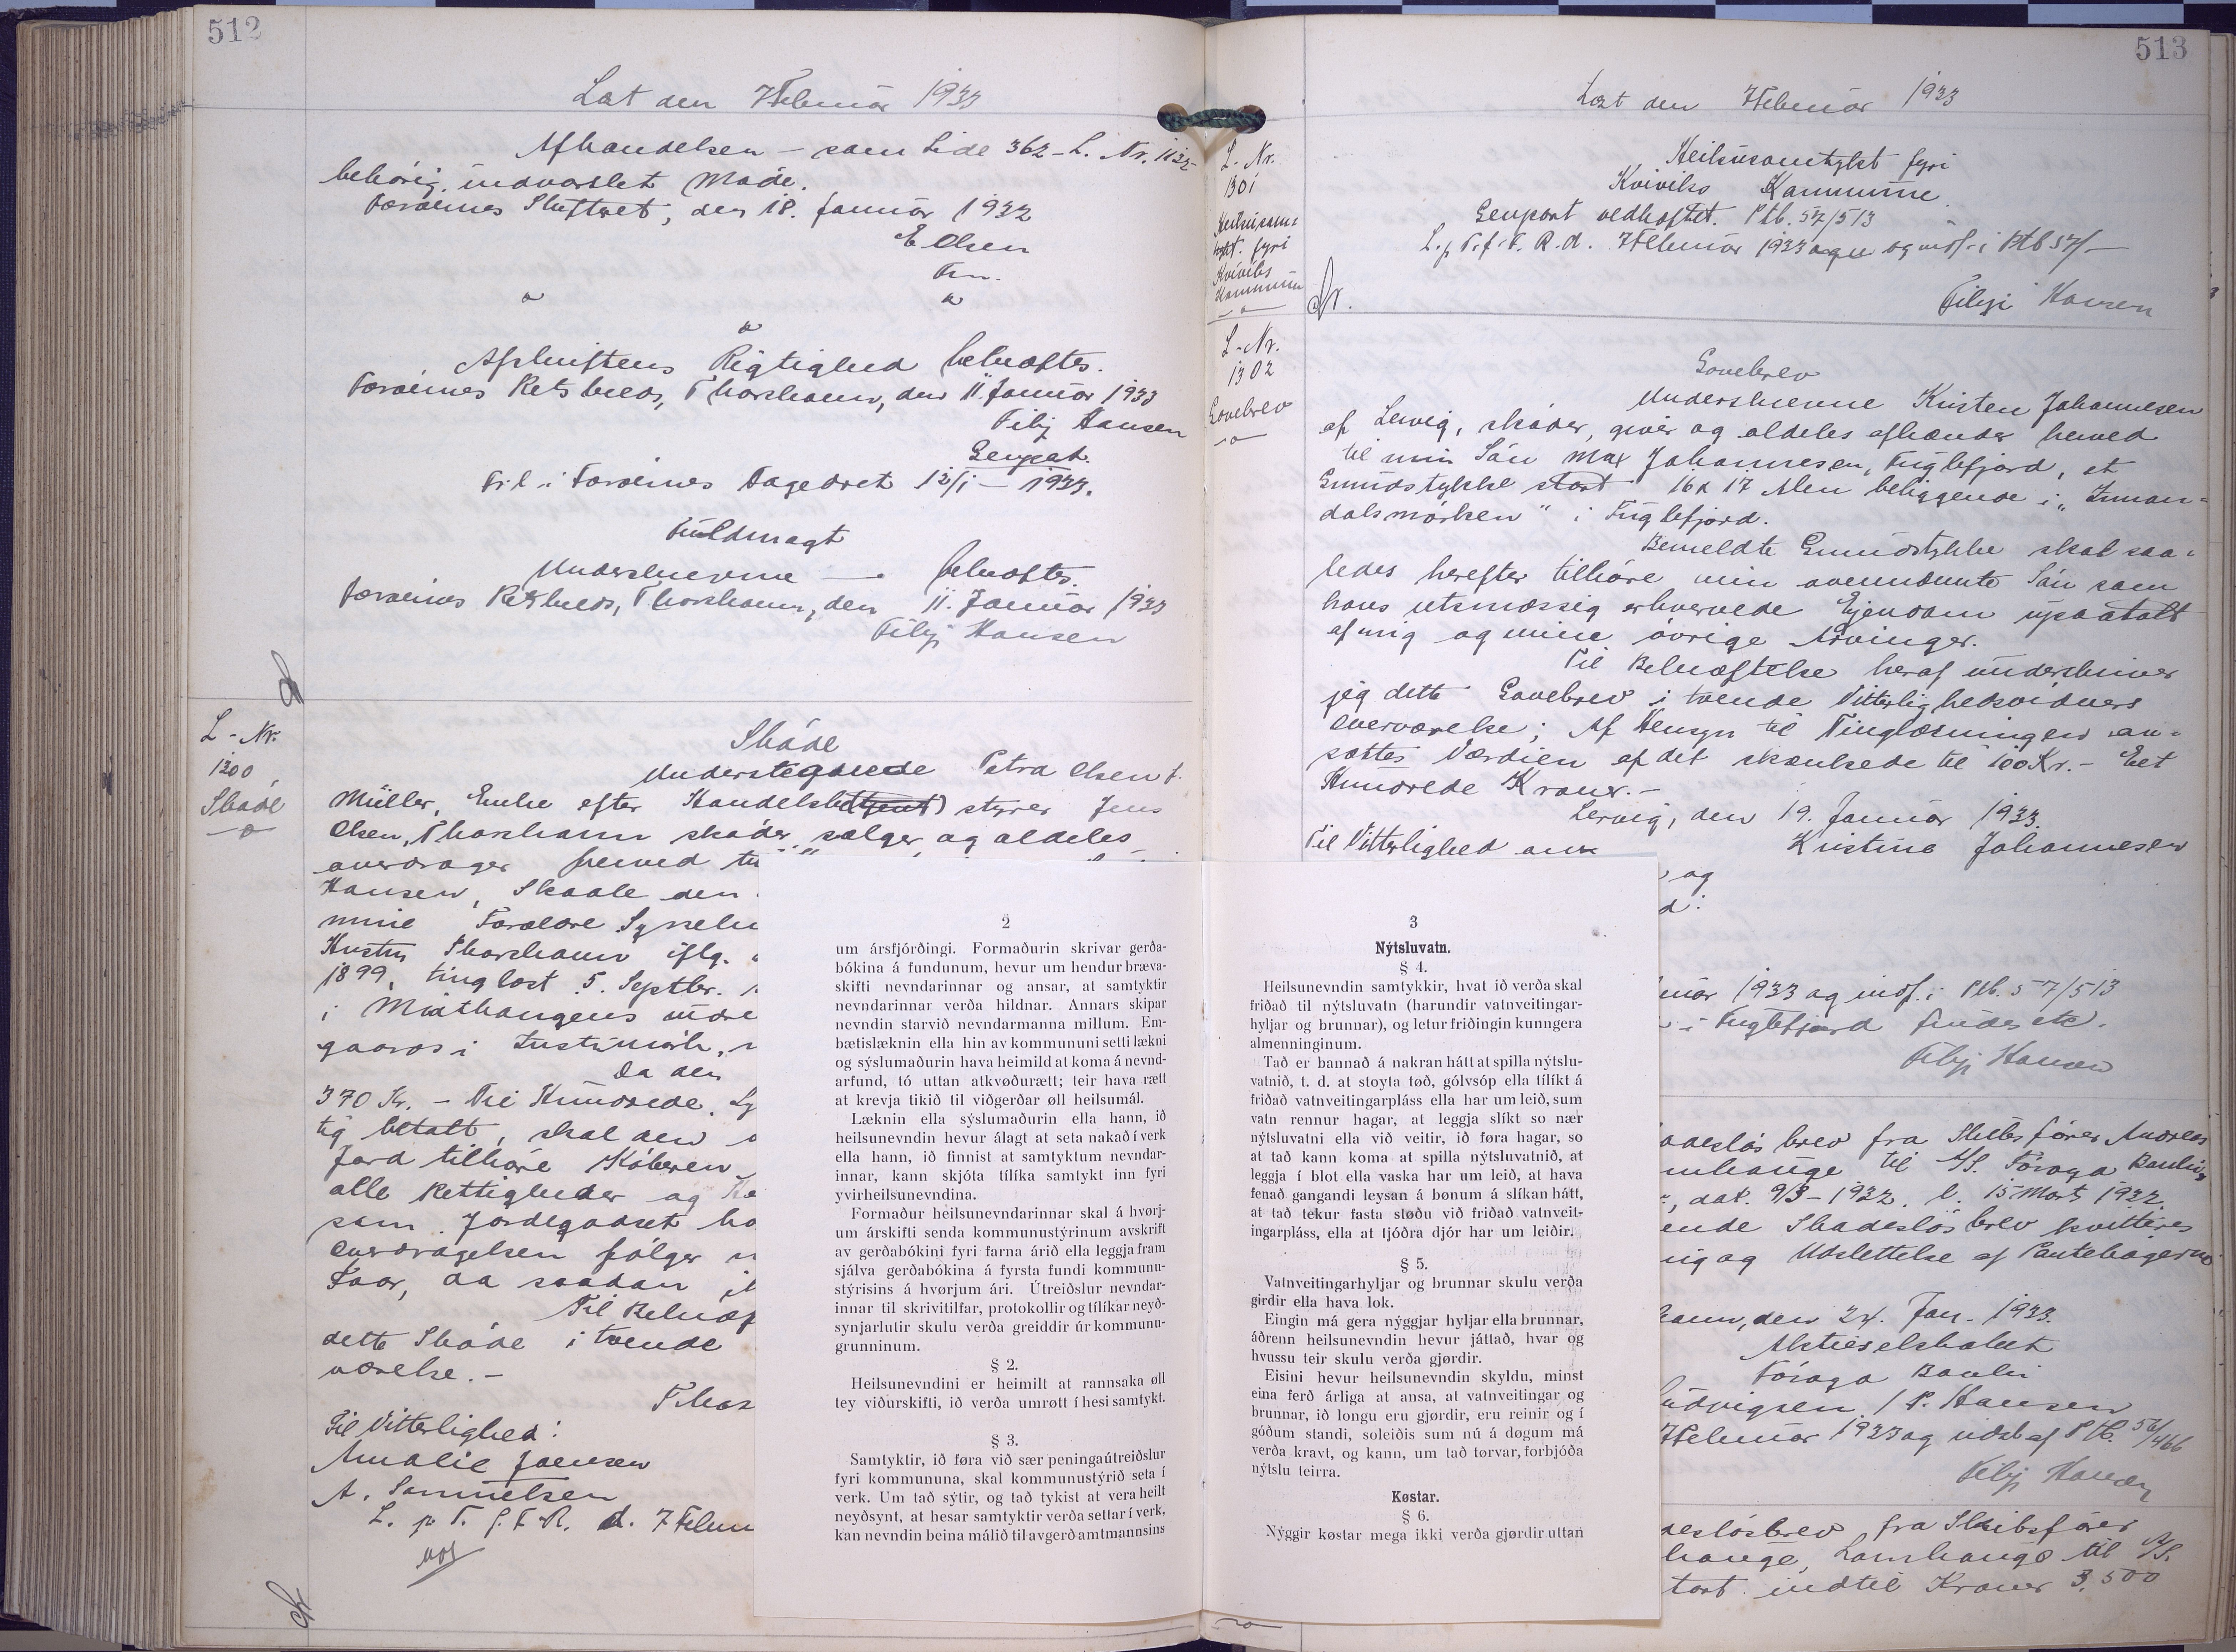 512
Læst den 7 Februar 1933
Afhandelsen – som Side 362 – L. Nr. 1132
behørig indvarslet Maade.
Færøernes Skifteret, den 18. Januar 1932
E Olsen
Fm.
Afskriftens Rigtighed bekræftes.
Færøernes Retskreds, Thorshavn, den 11. Januar 1933
Filip Hansen
Genpart.
Til i Færøernes Dagbøret 12/1 – 1933.
Fuldmagt
Underskrevne — bekræftes.
Færøernes Retskreds, Thorshavn, den 11. Januar 1933
Filip Hansen
L - Nr.
1300
Skøde
Skøde
Undertegnede Petra Olsen f.
Müller, Enke efter Handelsbestyrer Jens
Olsen, Thorshavn skøder, sælger og aldeles
overdrager herved til
Hansen, Skaale den
mine Forældre
Hustru Thorshavn iflg.
1899, tinglæst 5. Septbr. 1
i Midthaugens
gaards i
Da den
370 Kr. – Tre Hundrede
tig betalt, skal den
Jord tilhøre Køberen
alle Rettigheder og
som Jordegodset ha
Overdragelsen følger
Faar, da saadan
Til Bekræf
dette Skøde i tvende
værelse. –
Thors
Til Vitterlighed:
Amalie Joensen
A. Samuelsen
L. p. T. f. F. R. d. 7 Febru
2
um ársfjórðingi. Formaðurin skrivar gerða-
bókina á fundunum, hevur um hendur bræva-
skifti nevndarinnar og ansar, at samtyktir
nevndarinnar verða hildnar. Annars skipar
nevndin starvið nevndarmanna millum. Em-
bætislæknin ella hin av kommununi setti lækni
og sýslumaðurin hava heimild at koma á nevnd-
arfund, tó uttan atkvøðurætt; teir hava rætt
at krevja tikið til viðgerðar øll heilsumál.
Læknin ella sýslumaðurin ella hann, ið
heilsunevndin hevur álagt at seta nakað í verk
ella hann, ið finnist at samtyktum nevndar-
innar, kann skjóta tílíka samtykt inn fyri
yvirheilsunevndina.
Formaður heilsunevndarinnar skal á hvørj-
um árskifti senda kommunustýrinum avskrift
av gerðabókini fyri farna árið ella leggja fram
sjálva gerðabókina á fyrsta fundi kommunu-
stýrisins á hvørjum ári. Útreiðslur nevndar-
innar til skrivitilfar, protokollir og tílíkar neyð-
synjarlutir skulu verða greiddir úr kommunu-
grunninum.
§ 2.
Heilsunevndini er heimilt at rannsaka øll
tey viðurskifti, ið verða umrøtt í hesi samtykt.
§ 3.
Samtyktir, ið føra við sær peningaútreiðslur
fyri kommununa, skal kommunustýrið seta í
verk. Um tað sýtir, og tað tykist at vera heilt
neyðsynt, at hesar samtyktir verða settar í verk,
kan nevndin beina málið til avgerð amtmannsins
513
Læst den 7 Februar 1933
L. Nr.
1301
Heilsusam-
tykt fyri
Kviviks
Kommunu
Heilsusamtykt fyri
Kviviks Kommune.
Genpart vedhæftet. Ptb. 57/513
L. p. T. f. F. R. d. 7 Februar 1933 og indf. i Ptb 57/–
Filip Hansen
L - Nr.
1302
Gavebrev
Gavebrev
Underskrevne Kristen Johannesen
af Lervig, skøder, giver og aldeles afhænder herved
til min Søn Max Johannesen, Fuglefjord, et
Grundstykke stort 16 x 17 Alen beliggende i „Innan-
dalsmørken“ i Fuglefjord.
Bemeldte Grundstykke skal saa-
ledes herefter tilhøre min ovennævnte Søn som
hans retsmæssig erhvervede Ejendom upaatalt
af mig og mine øvrige Arvinger.
Til Bekræftelse heraf underskriver
jeg dette Gavebrev i tvende Vitterlighedsvidners
Overværelse; Af Hensyn til Tinglæsningen an-
sættes Værdien af det skænkede til 100 Kr. – Eet
Hundrede Kroner. –
Lervig, den 19. Januar 1933.
Til Vitterlighed om
Kristine Johannesen
og
d:
3
Nýtsluvatn.
§ 4.
Heilsunevndin samtykkir, hvat ið verða skal
friðað til nýtsluvatn (harundir vatnveitingar-
hyljar og brunnar), og letur friðingin kunngera
almenninginum.
Tað er bannað á nakran hátt at spilla nýtslu-
vatnið, t. d. at stoyta tøð, gólvsóp ella tílíkt á
friðað vatnveitingarpláss ella har um leið, sum
vatn rennur hagar, at leggja slíkt so nær
nýtsluvatni ella við veitir, ið føra hagar, so
at tað kann koma at spilla nýtsluvatnið, at
leggja í blot ella vaska har um leið, at hava
fenað gangandi leysan á bønum á slíkan hátt,
at tað tekur fasta støðu við friðað vatnveit-
ingarpláss, ella at tjóðra djór har um leiðir.
§ 5.
Vatnveitingarhyljar og brunnar skulu verða
girdir ella hava lok.
Eingin má gera nýggjar hyljar ella brunnar,
áðrenn heilsunevndin hevur játtað, hvar og
hvussu teir skulu verða gjørdir.
Eisini hevur heilsunevndin skyldu, minst
eina ferð árliga at ansa, at vatnveitingar og
brunnar, ið longu eru gjørdir, eru reinir og í
góðum standi, soleiðis sum nú á døgum má
verða kravt, og kann, um tað tørvar, forbjóða
nýtslu teirra.
Køstar.
§ 6.
Nýggir køstar mega ikki verða gjørdir uttan
ruar 1933 og indf. i Ptb. 57/513
i Fuglefjord findes etc.
Filip Hansen
adesløsbrev fra Skibsfører Andreas
mhauge til A/S. Føroya Banki,
dat. 9/3 – 1932. l. 15 Marts 1932.
ende Skadesløsbrev kvitteres
ig og Udslettelse af Pantebøgerne
havn, den 24. Jan. 1933.
Aktieselskabet
Føroya Banki
udvigsen / P. Hansen
7 Februar 1933 og udsl af Ptb. 56/466
Filip Hansen
esløsbrev fra Skibsfører
hauge, Lamhauge til A/S.
stort indtil Kroner 3,500